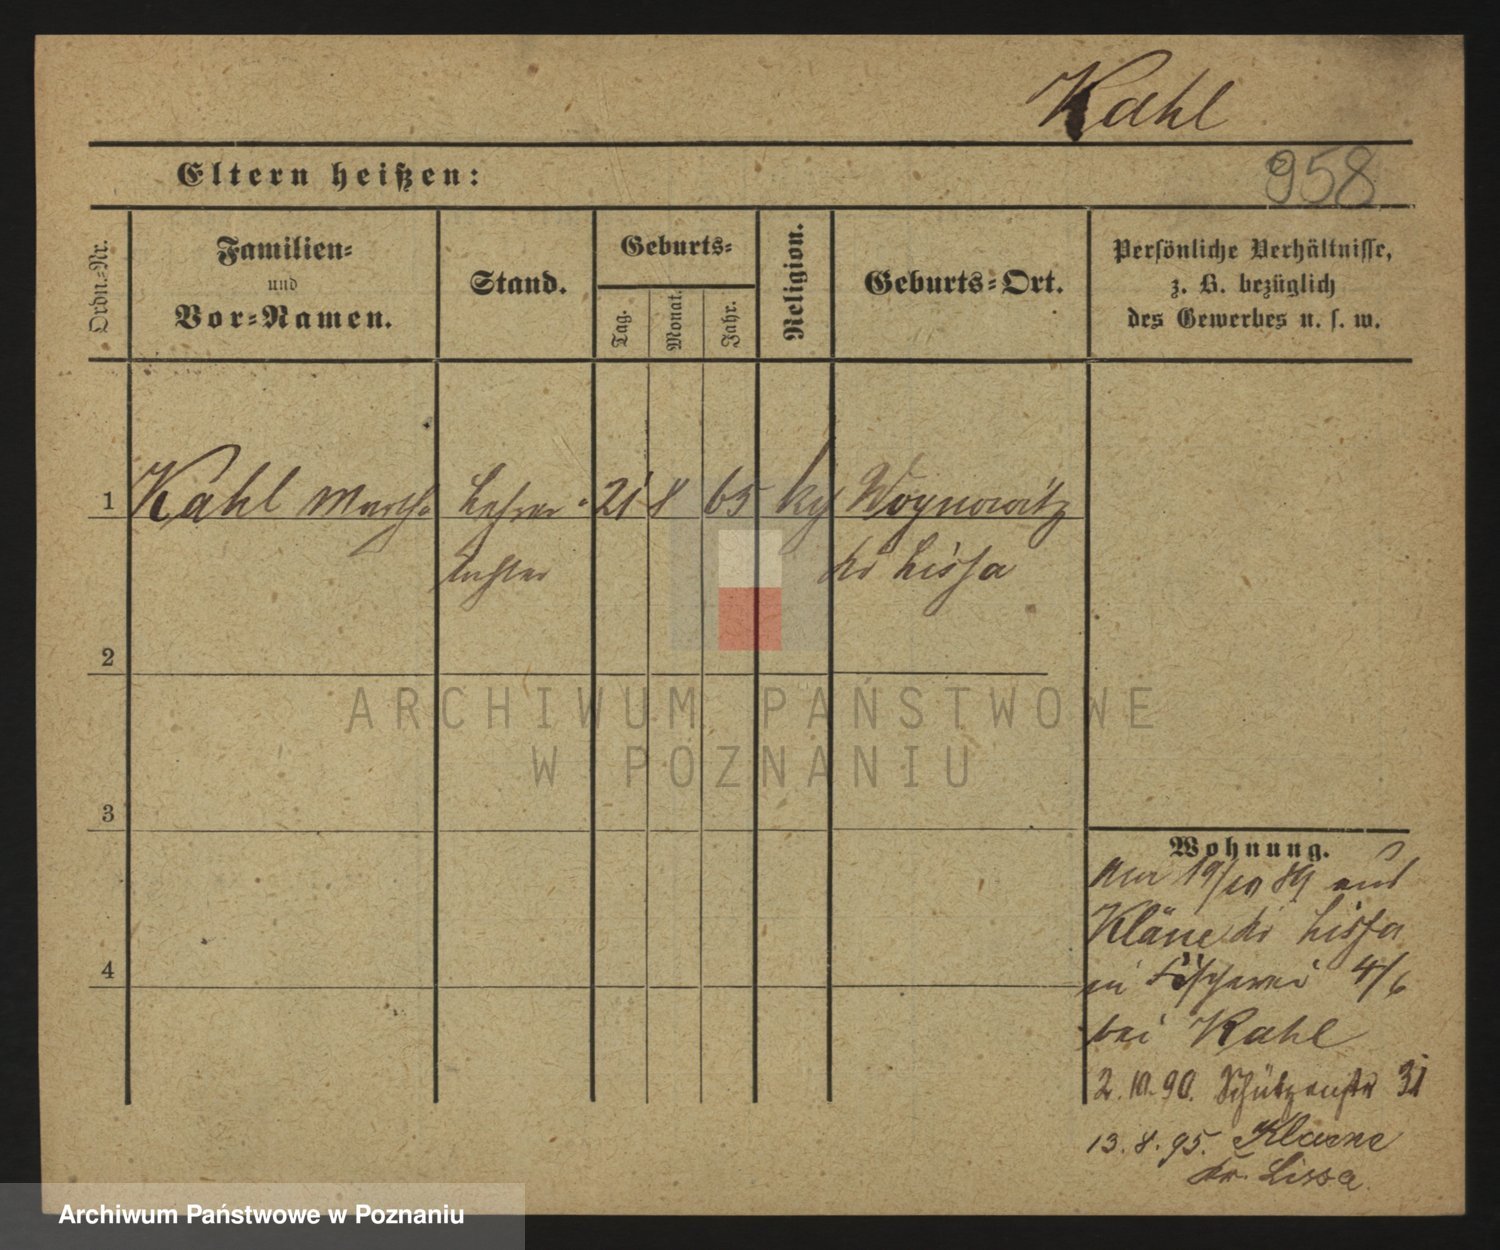 Kahl
Eltern heißen:
958
Ordn.-Nr.
Familien-
und
Vor-Namen.
Stand.
Geburts-
Tag.
Monat.
Jahr.
Religion.
Geburts-Ort.
Persönliche Verhältnisse,
z. B. bezüglich
des Gewerbes u. s. w.
1 Kahl Martha Lehrer- 21 8 65 Woynowitz
tochter Kr Lissa
2
ARCHIWUM PAŃSTWOWE
W POZNANIU
3
Wohnung.
19/10 89 aus
Kläne Kr Lissa
in Fischerei 4/6
bei Kahl
4
2.10.90. Schützenstr 31
13.8.95. Klaene
Kr. Lissa.
Archiwum Państwowe w Poznaniu